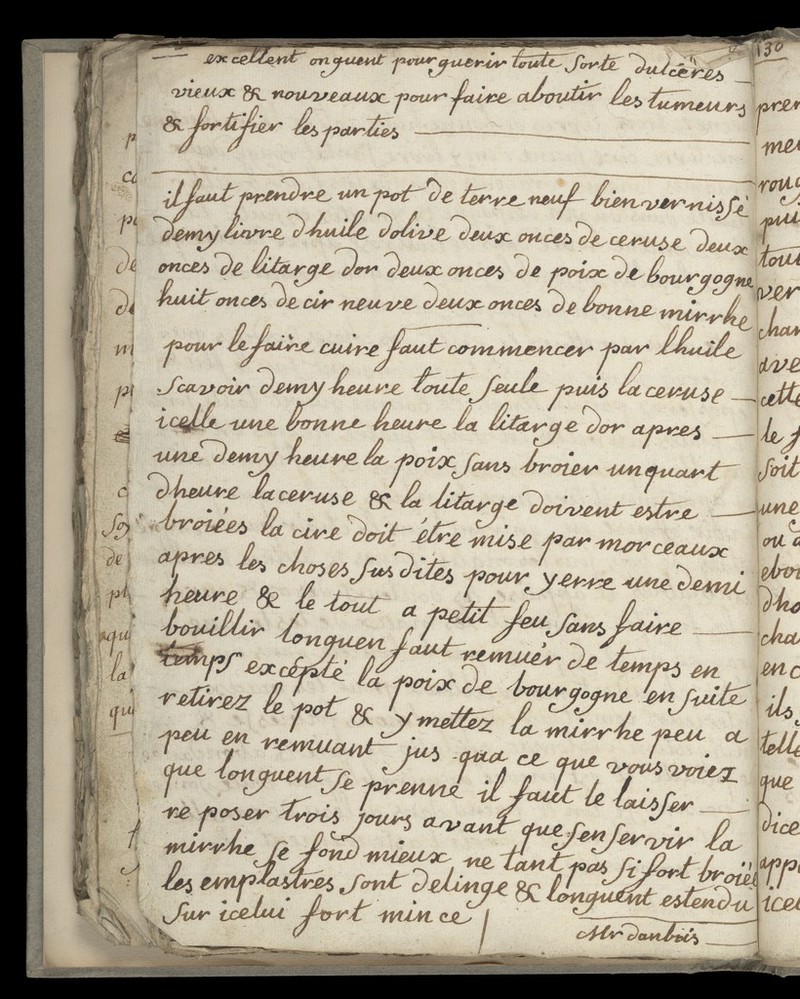 excellent onguent pour guerir toute sorte dulcéres
vieux & nouveaux pour faire aboutir les tumeurs
& fortifier les parties
il faut prendre un pot de terre neuf bien vernissé
demy livre dhuile dolive deux onces de ceruse deux
onces de litarge dor deux onces de poix de bourgogne
huit onces de cir neuve deux onces de bonne mirrhe
pour le faire cuire faut commencer par lhuile
scavoir demy heure toute seule puis la ceruse
icelle une bonne heure la litarge dor apres
une demy heure la poix sans broier un quart
dheure la ceruse & la litarge doivent estre
broiées la cire doit étre mise par morceaux
apres les choses susdites pour y erre une demi
heure & le tout a petit feu sans faire
bouillir longuen faut remuér de temps en
temps excépté la poix de bourgogne en suite
retirez le pot & y mettez la mirrhe peu a
peu en remuant jus qua ce que vous voiez
que longuent se prenne il faut le laisser
re poser trois jours avant que sen servir la
mirrhe se fond mieux ne tant pas si fort broiée
les emplastres sont delinge & longuent estendu
sur icelui fort mince
Mr danbois
130